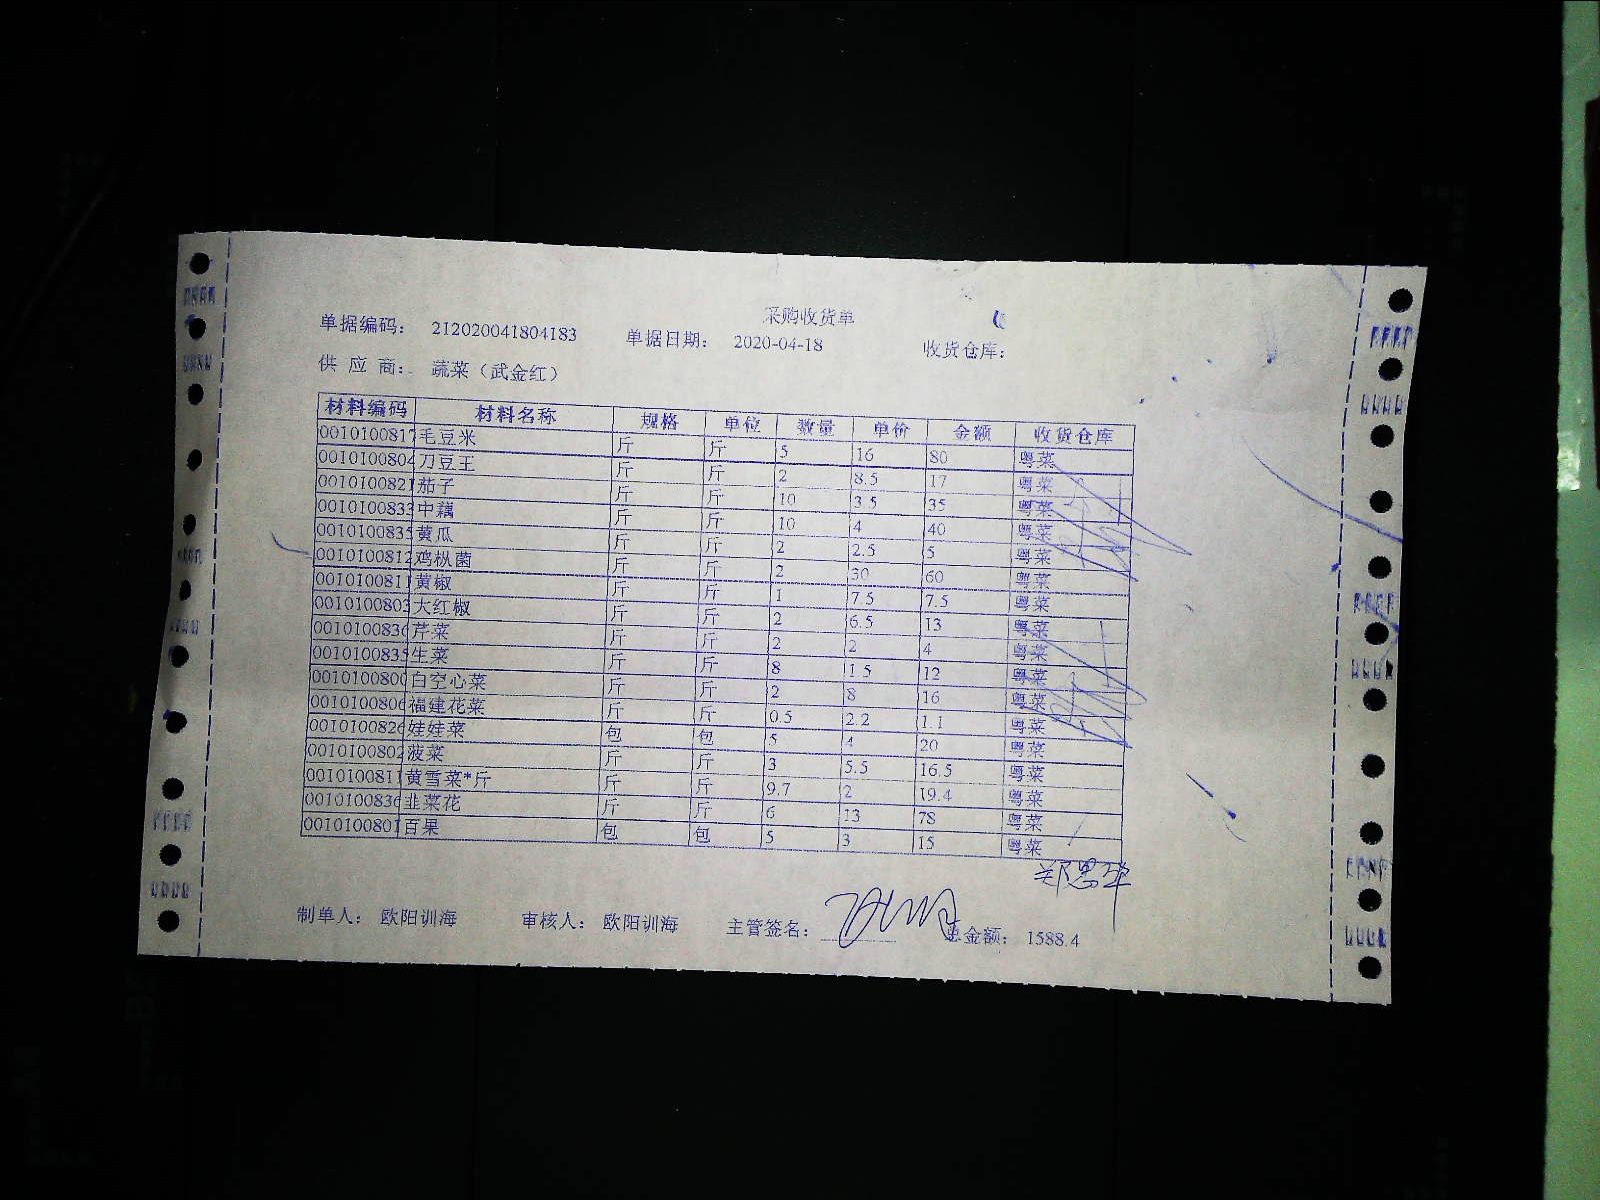 采购收货单
单据编码： 212020041804183 单据日期： 2020-04-18 收货仓库：
供 应 商： 蔬菜（武金红）
材料编码 材料名称 规格 单位 数量 单价 金额 收货仓库
0010100817 毛豆米 斤 斤 5 16 80 粤菜
0010100804 刀豆王 斤 斤 2 8.5 17 粤菜
0010100821 茄子 斤 斤 10 3.5 35 粤菜
0010100833 中藕 斤 斤 10 4 40 粤菜
0010100835 黄瓜 斤 斤 2 2.5 5 粤菜
0010100812 鸡枞菌 斤 斤 2 30 60 粤菜
0010100811 黄椒 斤 斤 1 7.5 7.5 粤菜
0010100803 大红椒 斤 斤 2 6.5 13 粤菜
0010100836 芹菜 斤 斤 2 2 4 粤菜
0010100835 生菜 斤 斤 8 1.5 12 粤菜
0010100800 白空心菜 斤 斤 2 8 16 粤菜
0010100806 福建花菜 斤 斤 0.5 2.2 1.1 粤菜
0010100826 娃娃菜 包 包 5 4 20 粤菜
0010100802 菠菜 斤 斤 3 5.5 16.5 粤菜
0010100811 黄雪菜*斤 斤 斤 9.7 2 19.4 粤菜
0010100836 韭菜花 斤 斤 6 13 78 粤菜
0010100801 百果 包 包 5 3 15 粤菜
制单人： 欧阳训海 审核人： 欧阳训海 主管签名： 总金额： 1588.4